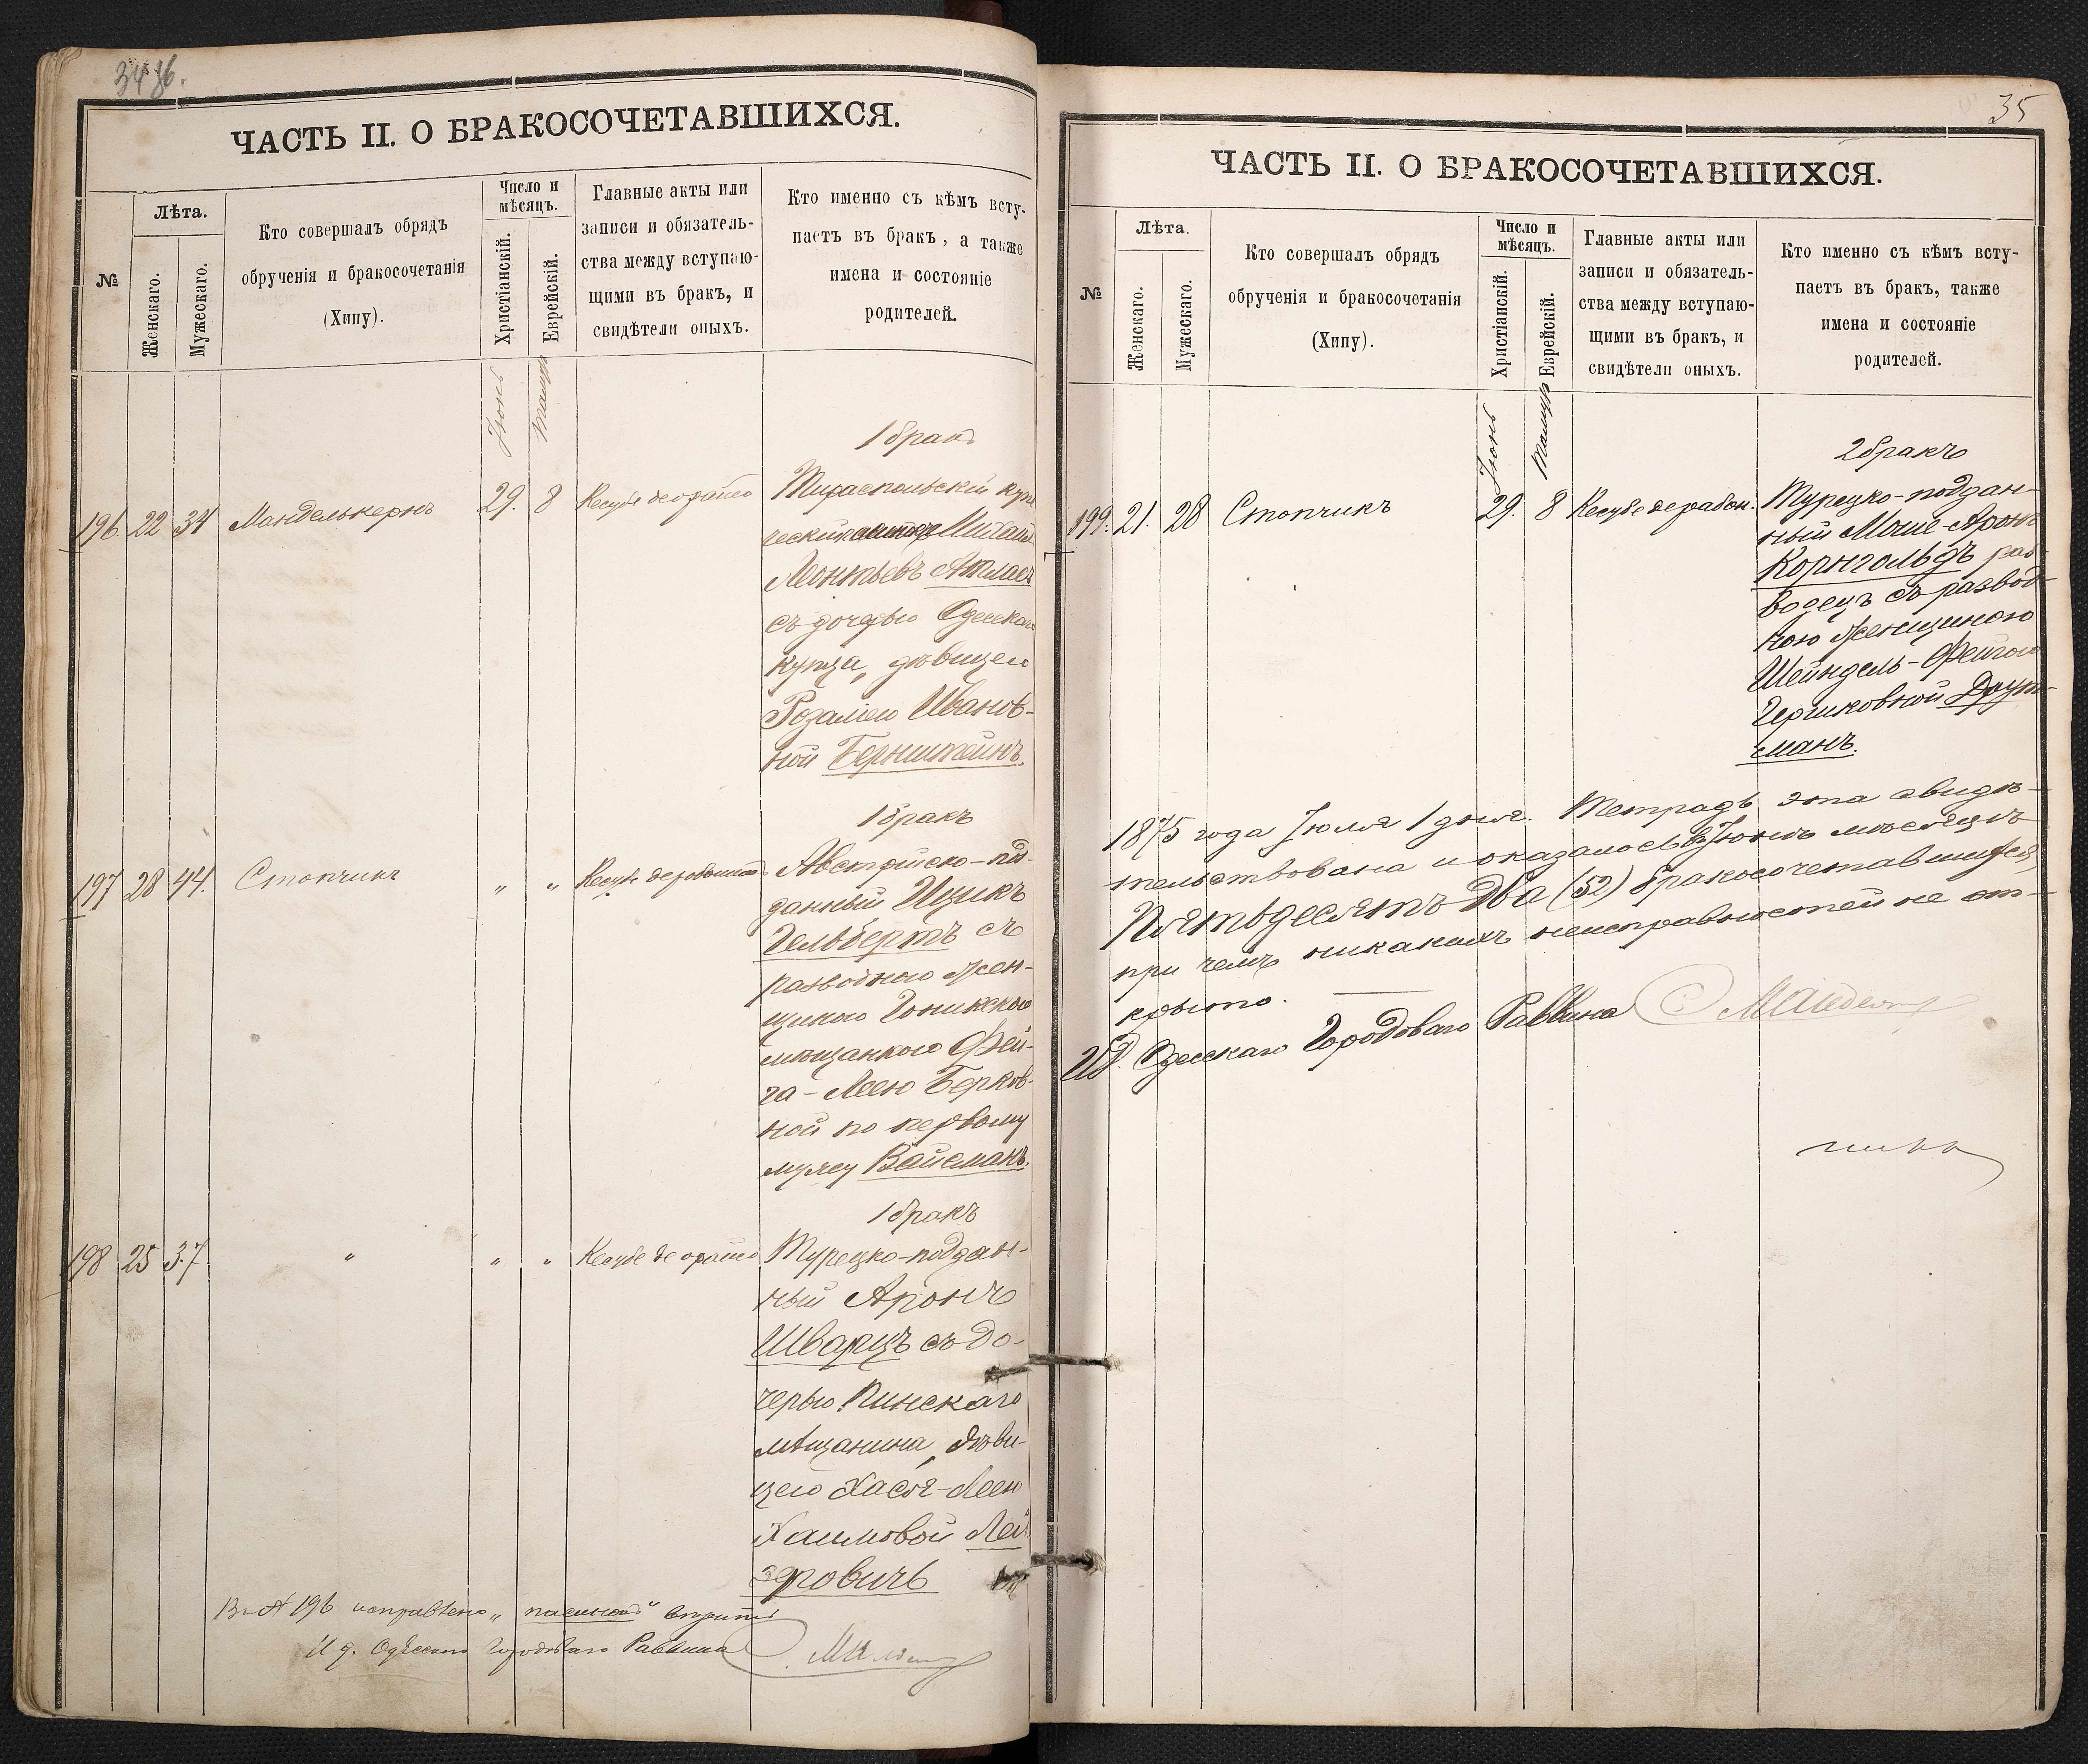 34
ЧАСТЬ II. О БРАКОСОЧЕТАВШИХСЯ.
№
Лѣта.
Женскаго.
Мужескаго.
Кто совершалъ обрядъ
обрученія и бракосочетанія
(Хипу).
Число и
мѣсяцъ.
Христіанскій.
Еврейскій.
Главные акты или
записи и обязатель-
ства между вступаю-
щими въ бракъ, и
свидѣтели оныхъ.
Кто именно съ кѣмъ всту-
паетъ въ бракъ, а также
имена и состояніе
родителей.
Іюнь
Тамуз
196. 22 34 Манделькернъ 29. 8 Кесубе деорайсо
1 бракъ
Тираспольскій купе
ческій Михаилъ
Леонтьевъ Атласъ
съ дочерью Одесскаго
купца, дѣвицею
Розаліею Иванов-
ной Бернштейнъ.
197 28 44. Стопчикъ " " Кесубе
1 бракъ
Австрійско-под-
данный Ицикъ
Гельбертъ съ
разводною жен-
щиною
мѣщанкою Фей-
га-Леею Берков-
ной по первому
мужу Вайсманъ.
198 25 37 " " " Кесубе деорайсо
1 бракъ
Турецко-поддан-
ный Аронъ
Шварцъ съ до-
черью Пинскаго
мѣщанина, дѣви-
цею Хася-Леею
Хаимовой Лей
зровичъ
В № 196 исправлено "
И д. Одесскаго Городоваго Раввина
35
ЧАСТЬ II. О БРАКОСОЧЕТАВШИХСЯ.
№
Лѣта.
Женскаго.
Мужескаго.
Кто совершалъ обрядъ
обрученія и бракосочетанія
(Хипу).
Число и
мѣсяцъ.
Христіанскій.
Еврейскій.
Главные акты или
записи и обязатель-
ства между вступаю-
щими въ бракъ, и
свидѣтели оныхъ.
Кто именно съ кѣмъ всту-
паетъ въ бракъ, также
имена и состояніе
родителей.
Іюнь
Тамуз
199. 21. 28 Стопчикъ 29. 8 Кесубе дерабон.
2 бракъ
Турецко-поддан-
ный Моше-Аронъ
Корнгольдъ раз-
водецъ съ развод-
ною женщиною
Шейндель-Фейгою
Гершковной Друт-
манъ.
1875 года Іюля 1 дня. Тетрадь эта свидѣ-
тельствована и оказалось въ Іюнѣ мѣсяцѣ
Пятьдесятъ два (52) бракосочетавшихся,
при чемъ никакихъ неисправностей не от-
крыто.
ИД. Одесскаго Городоваго Раввина